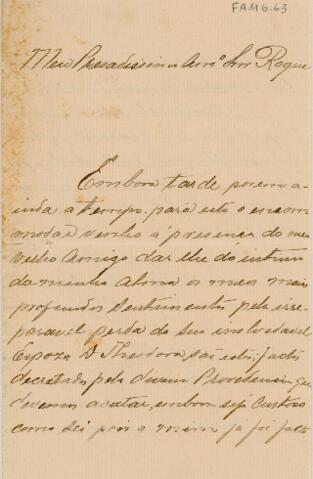 FAMG.63
Meu Presadissimo Amº Snr Roque
Embora tarde porem a-
inda a tempo para este o encom
modar venho á presença do meu
velho Amigo dar lhe do intimo
da minha Alma os meus mais
profundos Sentimentos pela irre-
paravel perda da sua inolvidavel
Espoza D Theodora, são estes factos
decretados pela divina Providencia que
devemos acatar, embora seja Custoso
como sei pois a mim já foi facto